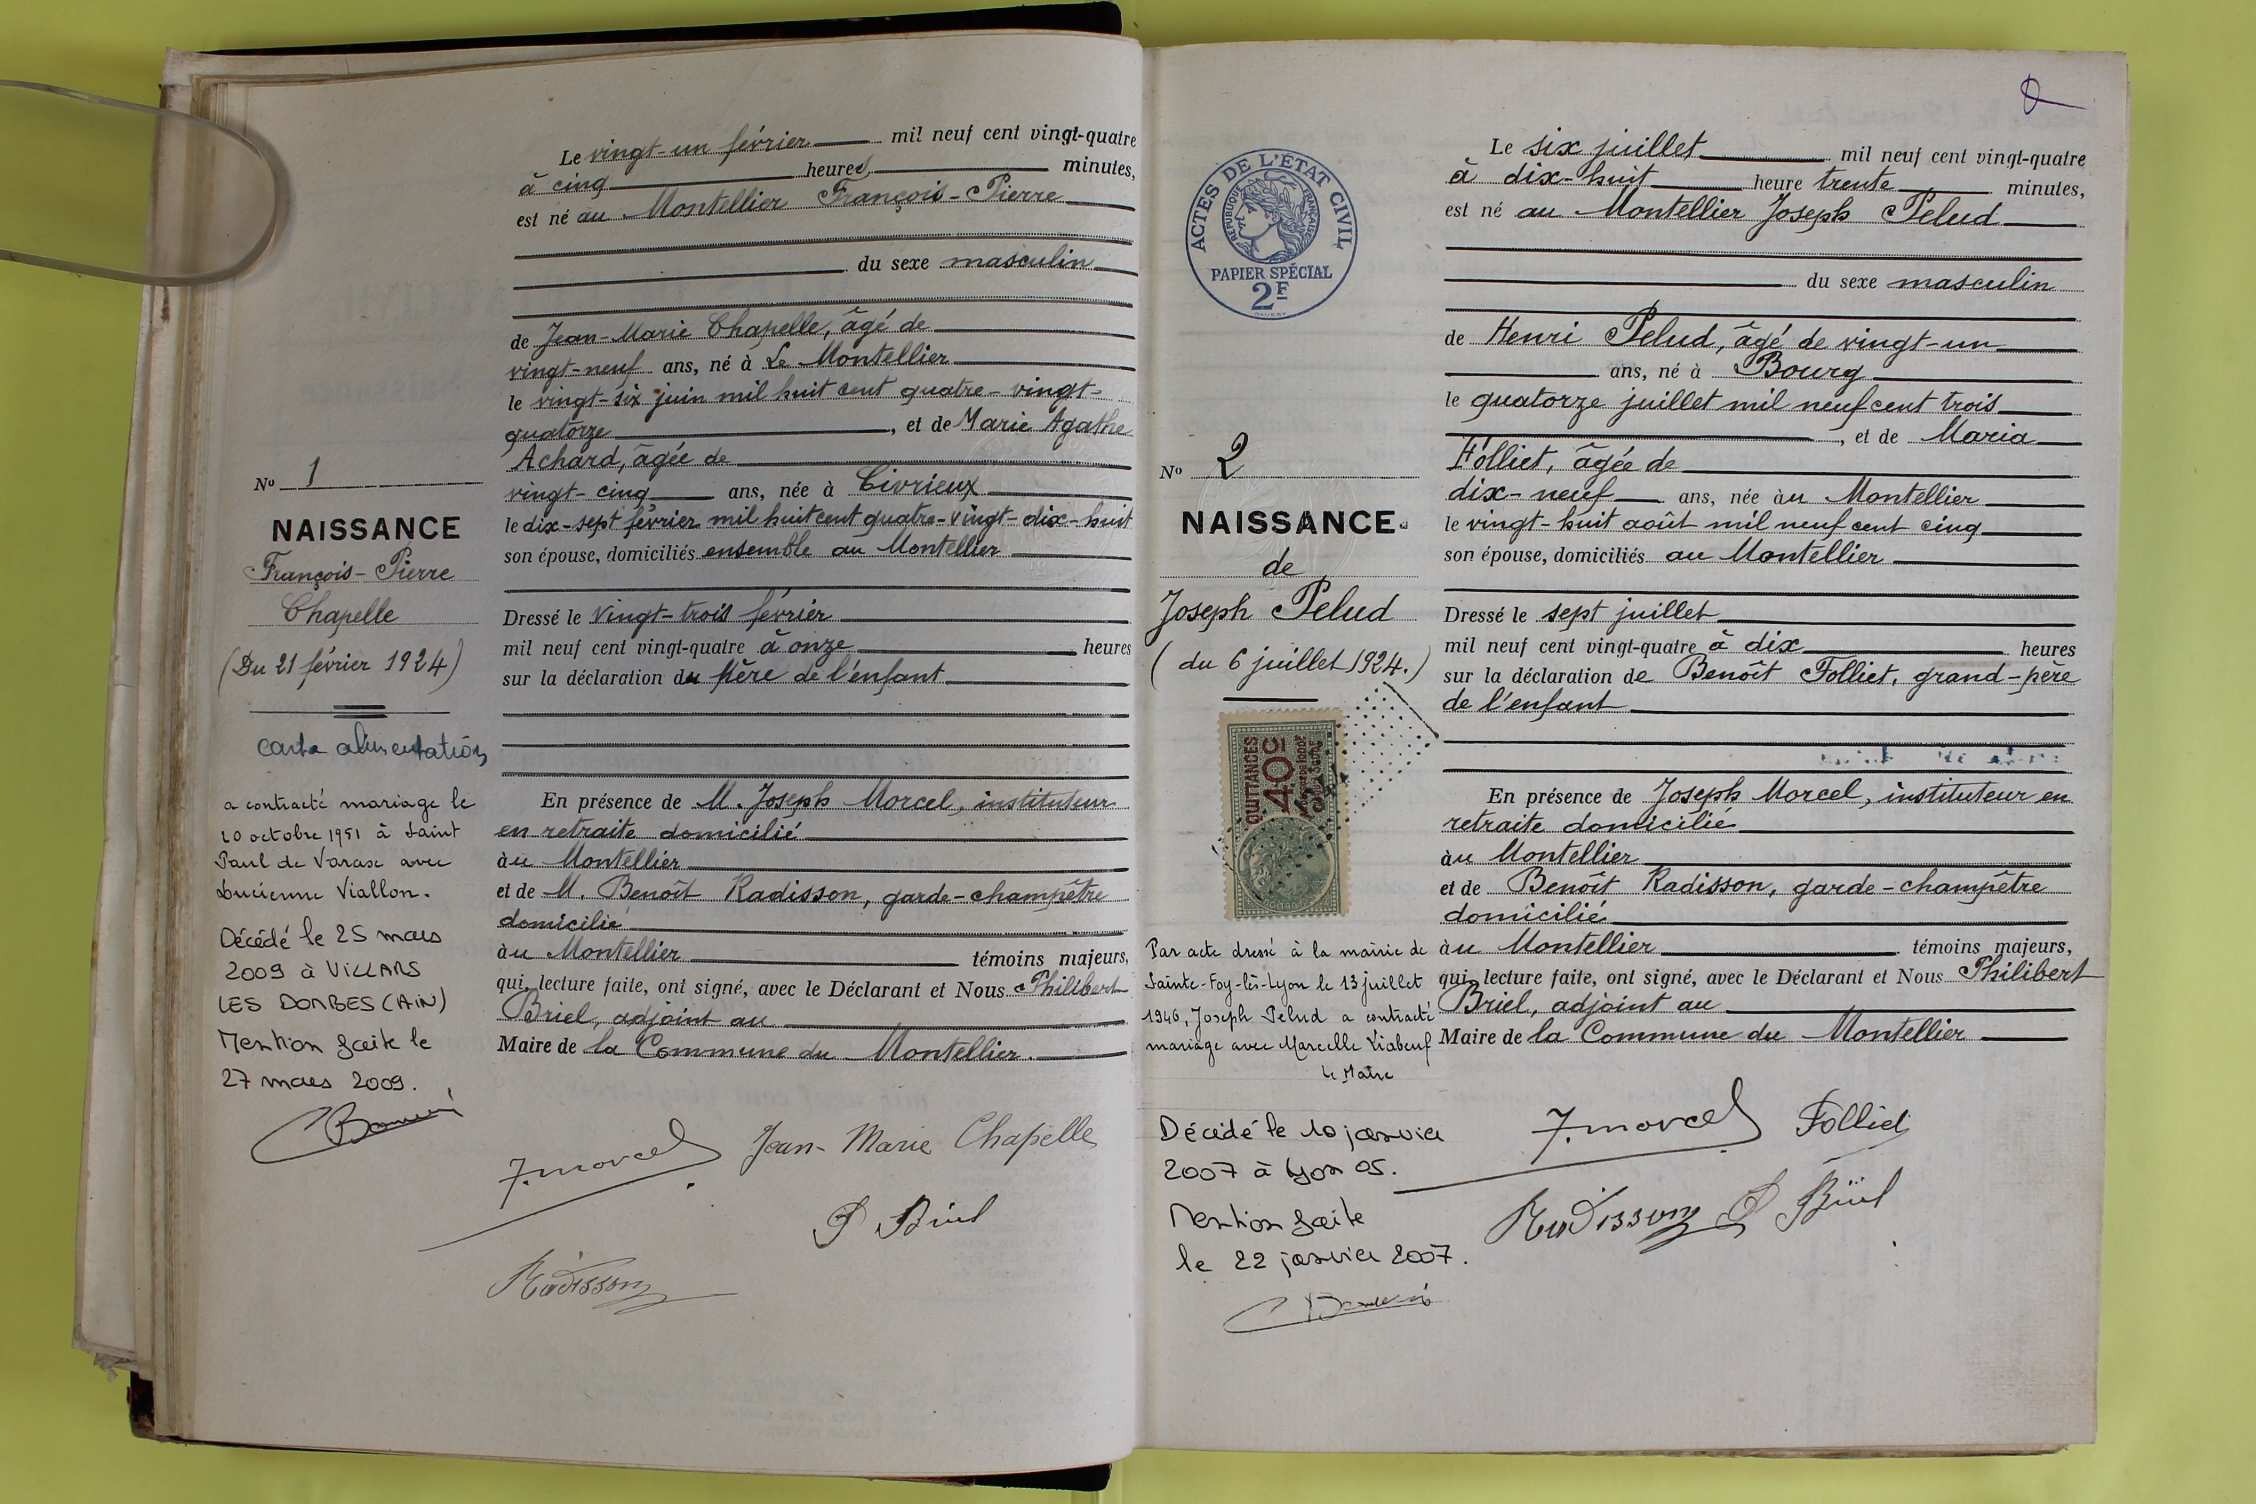 Le vingt-un février mil neuf cent vingt-quatre
à cinq heures minutes,
est né au Montellier François-Pierre
du sexe masculin
de Jean-Marie Chapelle, âgé de
vingt-neuf ans, né à Le Montellier
le vingt-six juin mil huit cent quatre-vingt-
quatorze, et de Marie Agathe
Achard, âgée de
vingt-cinq ans, née à Civrieux
le dix-sept février mil huit cent quatre-vingt-dix-huit
son épouse, domiciliés ensemble au Montellier
Dressé le vingt-trois février
mil neuf cent vingt-quatre à onze heures
sur la déclaration du père de l'enfant
En présence de M. Joseph Morcel, instituteur
en retraite domicilié
à au Montellier
et de M. Benoît Radisson, garde-champêtre
domicilié
à au Montellier témoins majeurs,
qui, lecture faite, ont signé, avec le Déclarant et Nous Philibert
Briel, adjoint au
Maire de la Commune du Montellier.
J. Morcel Jean-Marie Chapelle
P Briel
Radisson
No 1
NAISSANCE
François-Pierre
Chapelle
(Du 21 février 1924)
carte alimentation
a contracté mariage le
10 octobre 1951 à Saint
Paul de Varax avec
Lucienne Viallon.
Décédé le 25 mars
2009 à VILLARS
LES DOMBES (AIN)
Mention faite le
27 mars 2009.
ACTES DE L'ÉTAT CIVIL
RÉPUBLIQUE FRANÇAISE
PAPIER SPÉCIAL
2F
No 2
NAISSANCE
de
Joseph Pelud
(du 6 juillet 1924.)
QUITTANCES
40c
Par acte dressé à la mairie de
Sainte-Foy-lès-Lyon le 13 juillet
1946, Joseph Pelud a contracté
mariage avec Marcelle Viabeuf
Le Maire
Décédé le 10 janvier
2007 à Lyon 05.
Mention faite
le 22 janvier 2007.
Le six juillet mil neuf cent vingt-quatre
à dix-huit heure trente minutes,
est né au Montellier Joseph Pelud
du sexe masculin
de Henri Pelud, âgé de vingt-un
ans, né à Bourg
le quatorze juillet mil neuf cent trois
, et de Maria
Folliet, âgée de
dix-neuf ans, née à au Montellier
le vingt-huit août mil neuf cent cinq
son épouse, domiciliés au Montellier
Dressé le sept juillet
mil neuf cent vingt-quatre à dix heures
sur la déclaration de Benoît Folliet, grand-père
de l'enfant
En présence de Joseph Morcel, instituteur en
retraite domicilié
à au Montellier
et de Benoît Radisson, garde-champêtre
domicilié
à au Montellier témoins majeurs,
qui, lecture faite, ont signé, avec le Déclarant et Nous Philibert
Briel, adjoint au
Maire de la Commune du Montellier
J. Morcel Folliet
Radisson P Briel